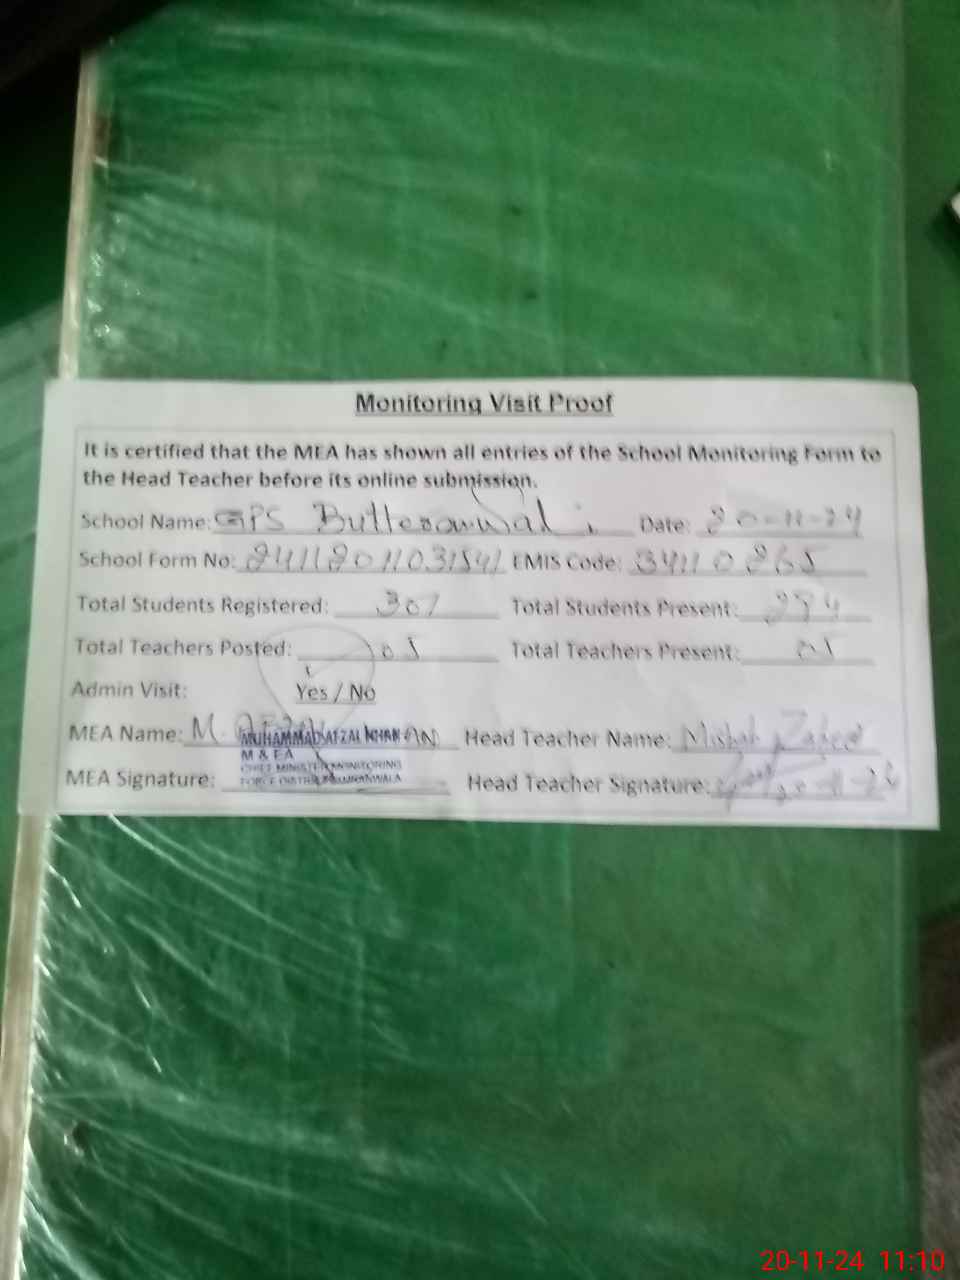 Monitoring Visit Proof
It is certified that the MEA has shown all entries of the School Monitoring Form to
the Head Teacher before its online submission.
School Name: GPS Date: 20-11-24
School Form No: EMIS Code: 34110265
Total Students Registered: 307 Total Students Present: 294
Total Teachers Posted: 05 Total Teachers Present: 05
Admin Visit: Yes / No
MEA Name: M. AFZAL KHAN Head Teacher Name: Zaheer
MUHAMMAD AFZAL KHAN
M & EA
CHIEF MINISTER MONITORING
FORCE DISTRICT
MEA Signature: Head Teacher Signature:
20-11-24 11:10